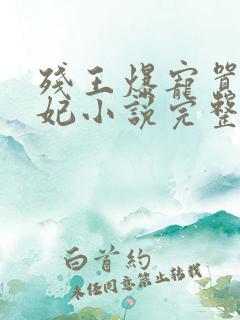 残王爆宠嚣
妃小说完整
白首約
未经同意禁止转载